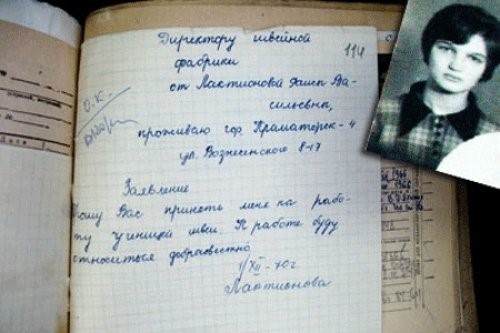 Директору швейной
фабрики
114
от Лактионовой Раисы Ва-
сильевны,
проживаю гор. Краматорск-4
ул. Вознесенского 8-17
О.К.
Заявление
Прошу Вас принять меня на рабо-
ту ученицей швеи. К работе буду
относиться добросовестно
1/XII-70г
Лактионова